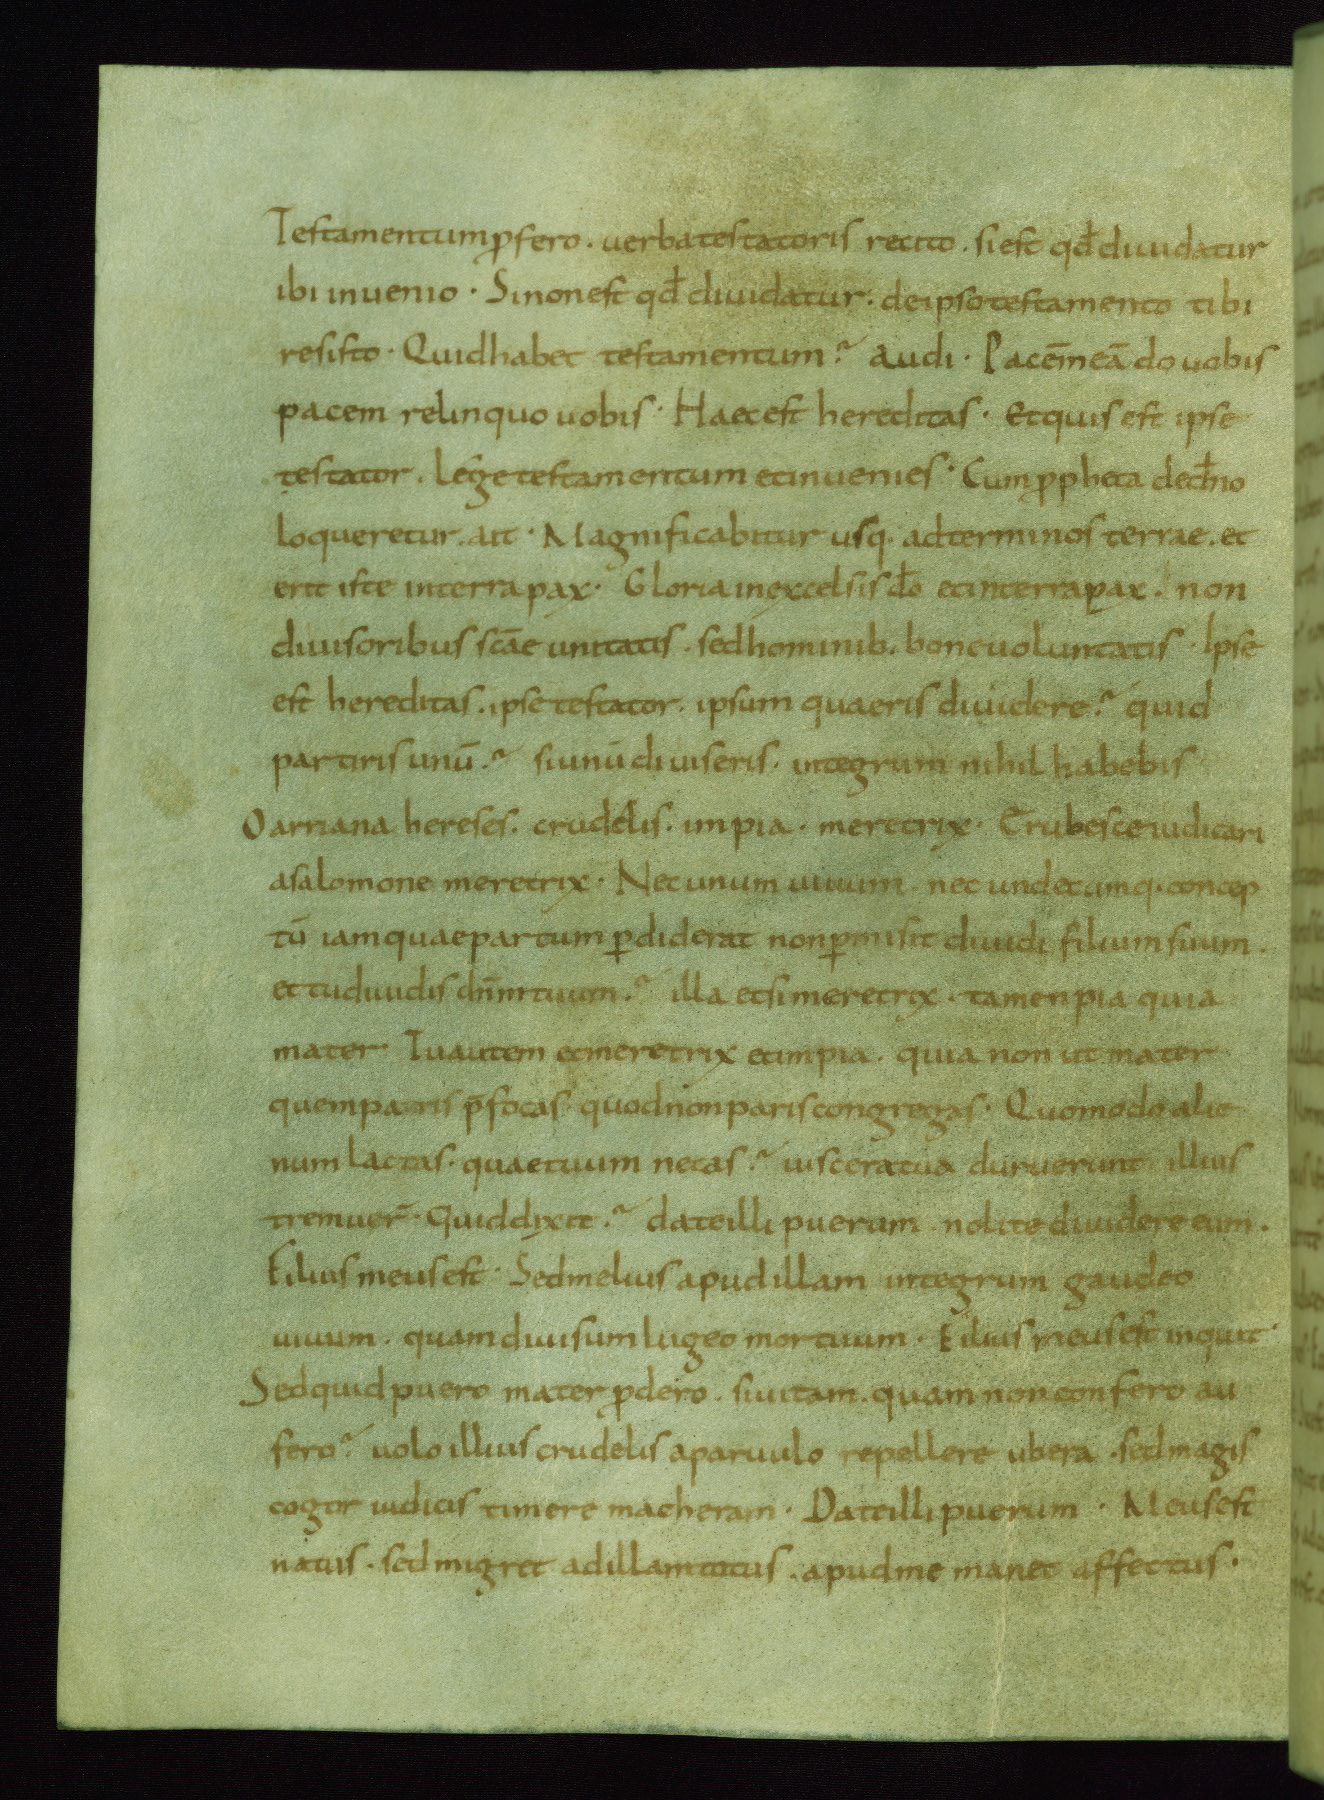 Testamentum ꝓfero. uerba testatoris recito. si est qđ diuidatur
ibi inuenio. Si non est qđ diuidatur. de ipso testamento tibi
resisto. Quid habet testamentum? Audi. Pacē meā do uobis
pacem relinquo uobis. Haec est hereditas. Et quis est ipse
testator. lege testamentum et inuenies. Cum ꝓpheta de dn̄o
loqueretur. ait. Magnificabitur usq. ad terminos terrae. et
erit iste in terra pax. Gloria in excelsis do et in terra pax. non
diuisoribus scāe unitatis. sed hominib. bone uoluntatis. Ipse
est hereditas. ipse testator. ipsum quaeris diuidere? quid
partiris unū? si unū diuiseris. integrum nihil habebis
O arriana hereses. crudelis. impia. meretrix. Erubesce iudicari
a salomone meretrix. Nec unum uiuum. nec undecumq. concep
tū iam quae partum ꝑdiderat non ꝑmisit diuidi filium suum.
et tu diuidis dn̄m tuum? illa etsi meretrix. tamen pia quia
mater Tu autem et meretrix et impia. quia non ut mater
quem patris p̄focas quod non paris congregas. Quomodo alie
num lactas. quae tuum necas? uiscera tua duruerunt illius
tremuer̄. Quid dixit? date illi puerum nolite diuidere eum.
Filius meus est. Sed melius apud illam integrum gaudeo
uiuum. quam diuisum lugeo mortuum. Filius meus est inquit.
Sed quid puero mater ꝓdero. si uitam. quam non confero au
fero? uolo illius crudelis a paruulo repellere ubera. sed magis
cogor iudicis timere macheram. Date illi puerum. Meus est
natus. sed migret ad illam totus. apud me manet affectus.